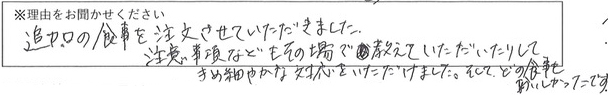 ※理由をお聞かせください
追加の食事を注文させていただきました。
注意事項などもその場で教えていただいたりして
きめ細やかな対応をいただけました。そして、どの食事も
おいしかったです